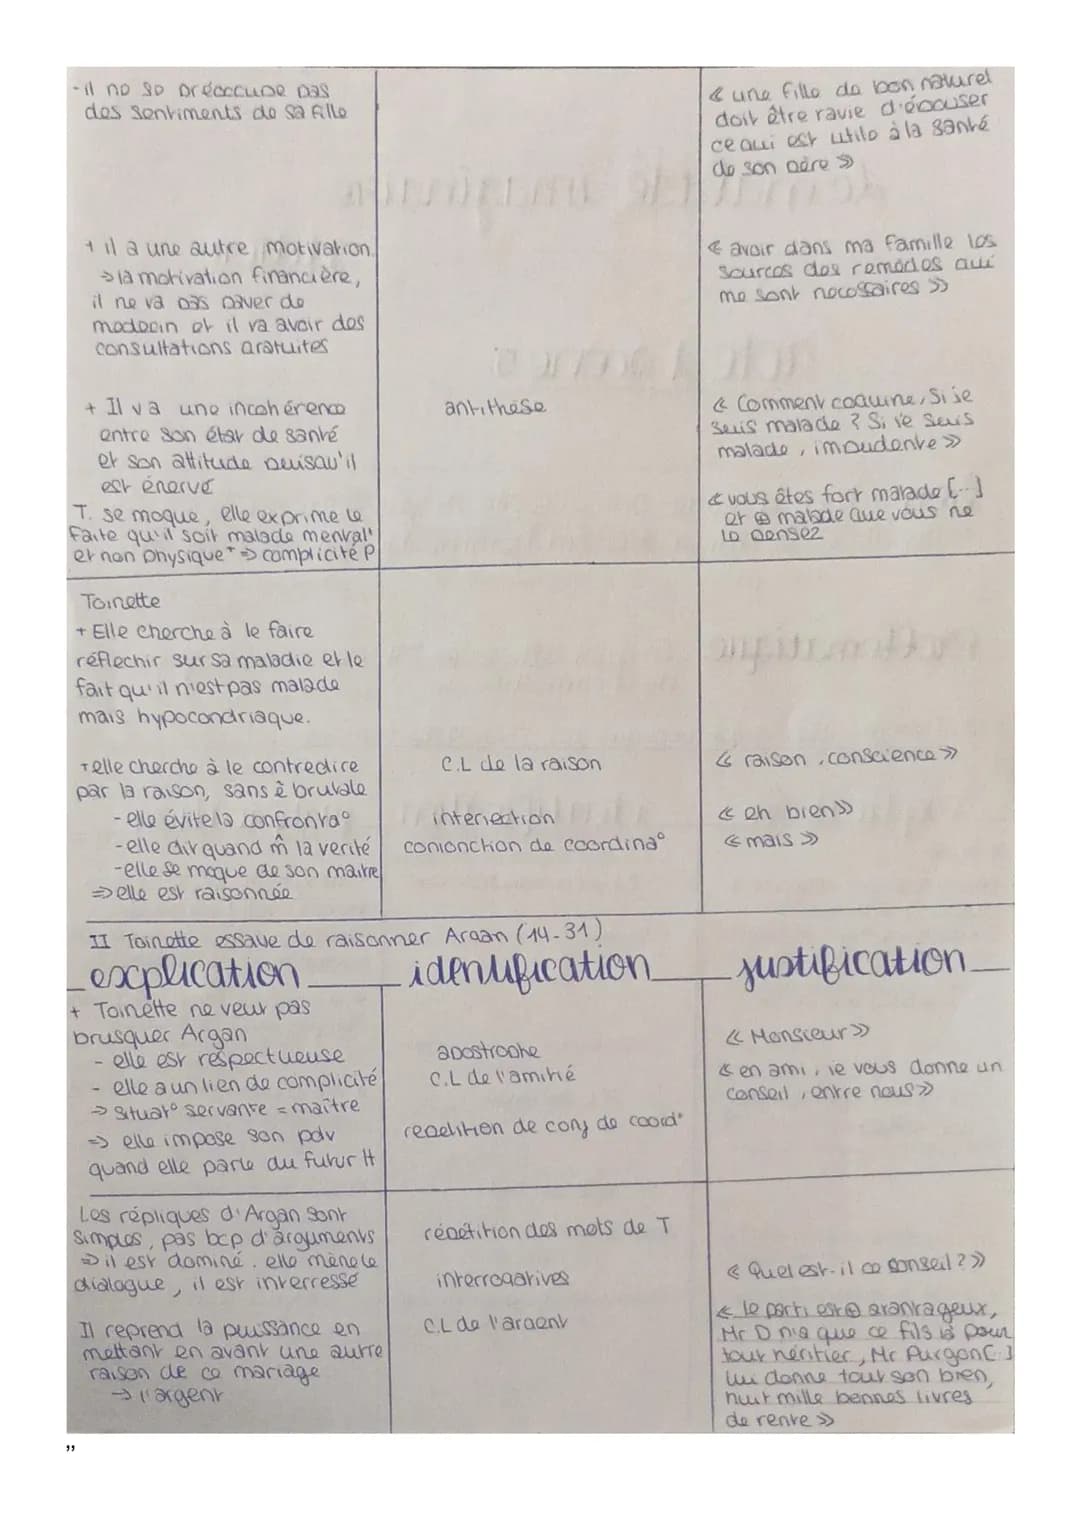 -il ne se préoccupe pas
des sentiments de sa fille
« une fille de bon naturel
doit être ravie d'épouser
ce qui est utile à la santé
de son père »
+ il a une autre motivation
→ la motivation financière,
il ne va pas payer de
medecin et il va avoir des
consultations gratuites
« avoir dans ma famille les
sources des remèdes qui
me sont necessaires »
+ Il y a une incohérence
entre son état de santé
et son attitude puisqu'il
est énervé
T. se moque, elle exprime le
faite qu'il soit malade mental
et non physique+ ⇒ complicité P
antithèse
« Comment coquine, Si je
suis malade ? Si je suis
malade, impudente »
« vous êtes fort malade [..]
et ⊕ malade que vous ne
le pensez
Toinette
+ Elle cherche à le faire
réflechir sur sa maladie et le
fait qu'il n'est pas malade
mais hypocondriaque.
+ elle cherche à le contredire
par la raison, sans ê brutale
- elle évite la confronta°
- elle dit quand m̂ la verité
- elle se moque de son maitre
⇒ elle est raisonnée
C.L de la raison
interjection
conjonction de coordina°
« raison, conscience »
« eh bien »
« mais »
II Toinette essaye de raisonner Argan (14-31)
explication identification justification
+ Toinette ne veut pas
brusquer Argan
- elle est respectueuse
- elle a un lien de complicité
→ situat° servante = maître
⇒ elle impose son pdv
quand elle parle du futur H
apostrophe
C.L de l'amitié
repetition de conj de coord°
« Monsieur »
« en ami, je vous donne un
conseil, entre nous »
Les répliques d'Argan sont
simples, pas bcp d'arguments
⇒ il est dominé. elle mène le
dialogue, il est interressé
Il reprend la puissance en
mettant en avant une autre
raison de ce mariage
→ l'argent
répétition des mots de T
interrogatives
C.L de l'argent
« Quel est-il ce conseil ? »
« le parti est ⊕ avantageux,
Mr D n'a que ce fils là pour
tout héritier, Mr Purgon [..]
lui donne tout son bien,
huit mille bonnes livres
de rente »
”